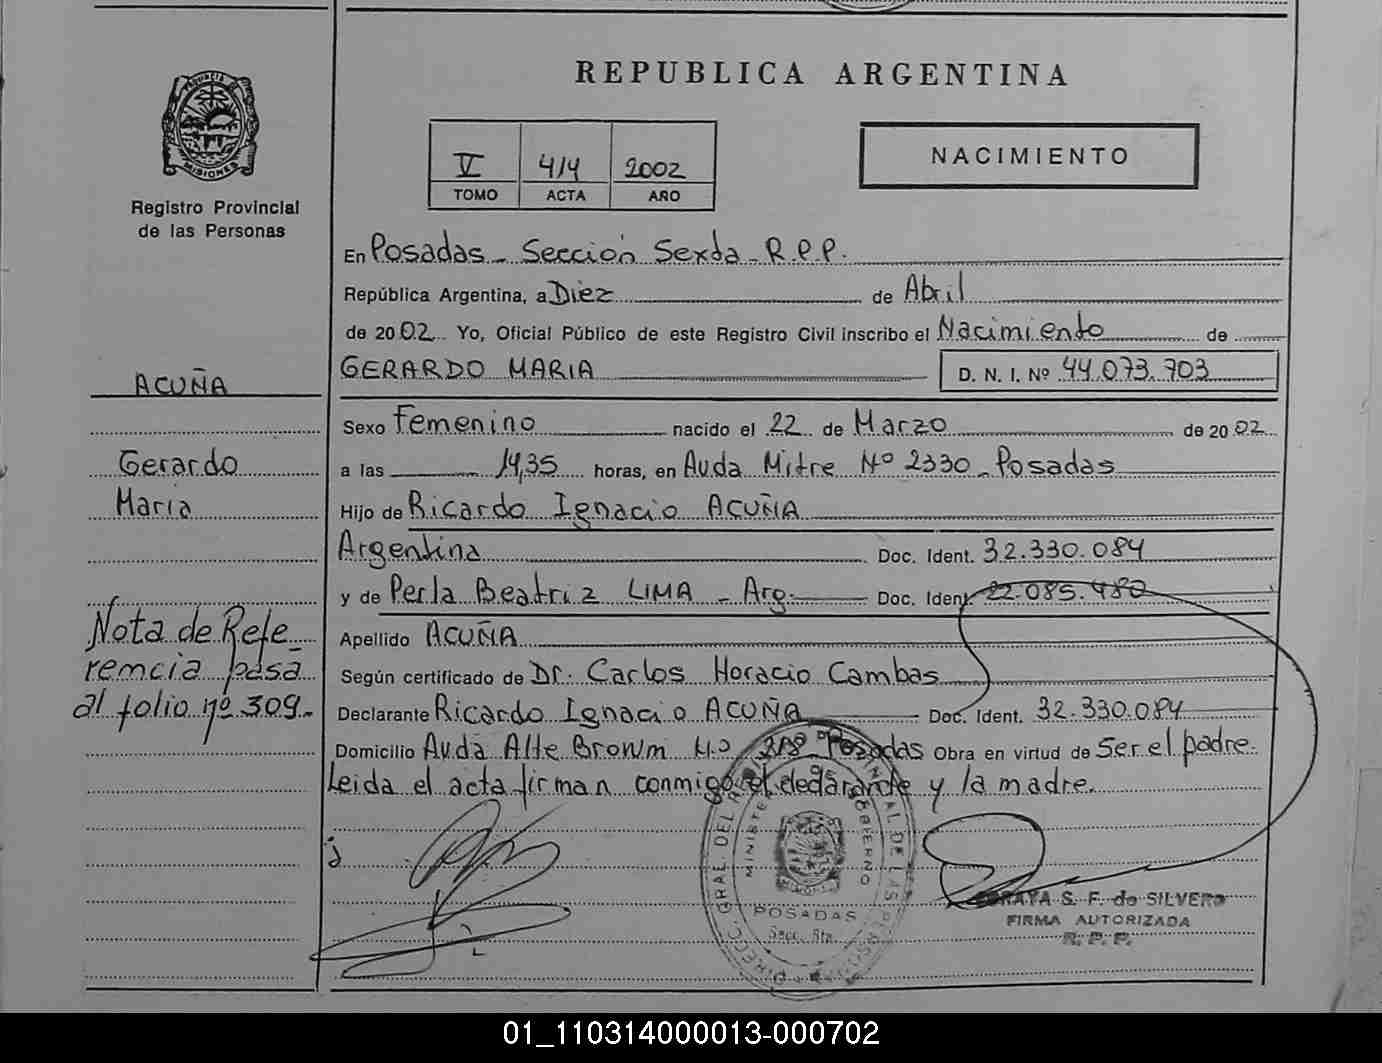 REPUBLICA ARGENTINA
PROVINCIA
MISIONES
Registro Provincial
de las Personas
V 414 2002
TOMO ACTA AÑO
NACIMIENTO
En Posadas - Sección Sexta - R.P.P.
República Argentina, a Diez de Abril
de 2002 Yo, Oficial Público de este Registro Civil inscribo el Nacimiento de
GERARDO MARIA D. N. I. Nº 44.073.703
ACUÑA
Sexo Femenino nacido el 22 de Marzo de 2002
Gerardo
a las 14,35 horas, en Avda Mitre Nº 2330 - Posadas
Maria
Hijo de Ricardo Ignacio ACUÑA
Argentina Doc. Ident. 32.330.084
y de Perla Beatriz LIMA - Arg. Doc. Ident. 22.085.482
Nota de Refe-
Apellido ACUÑA
remcia pasa
Según certificado de Dr. Carlos Horacio Cambas
al folio nº 309-
Declarante Ricardo Ignacio ACUÑA Doc. Ident. 32.330.084
Domicilio Avda Alte Brown Nº Posadas Obra en virtud de Ser el padre.
Leida el acta firman conmigo el declarante y la madre.
DIRECC. GRAL. DEL REGISTRO PROVINCIAL DE LAS PERSONAS
MINISTERIO GOBIERNO
POSADAS
Secc. 6ta.
SORAYA S. F. de SILVERO
FIRMA AUTORIZADA
R. P. P.
01_110314000013-000702